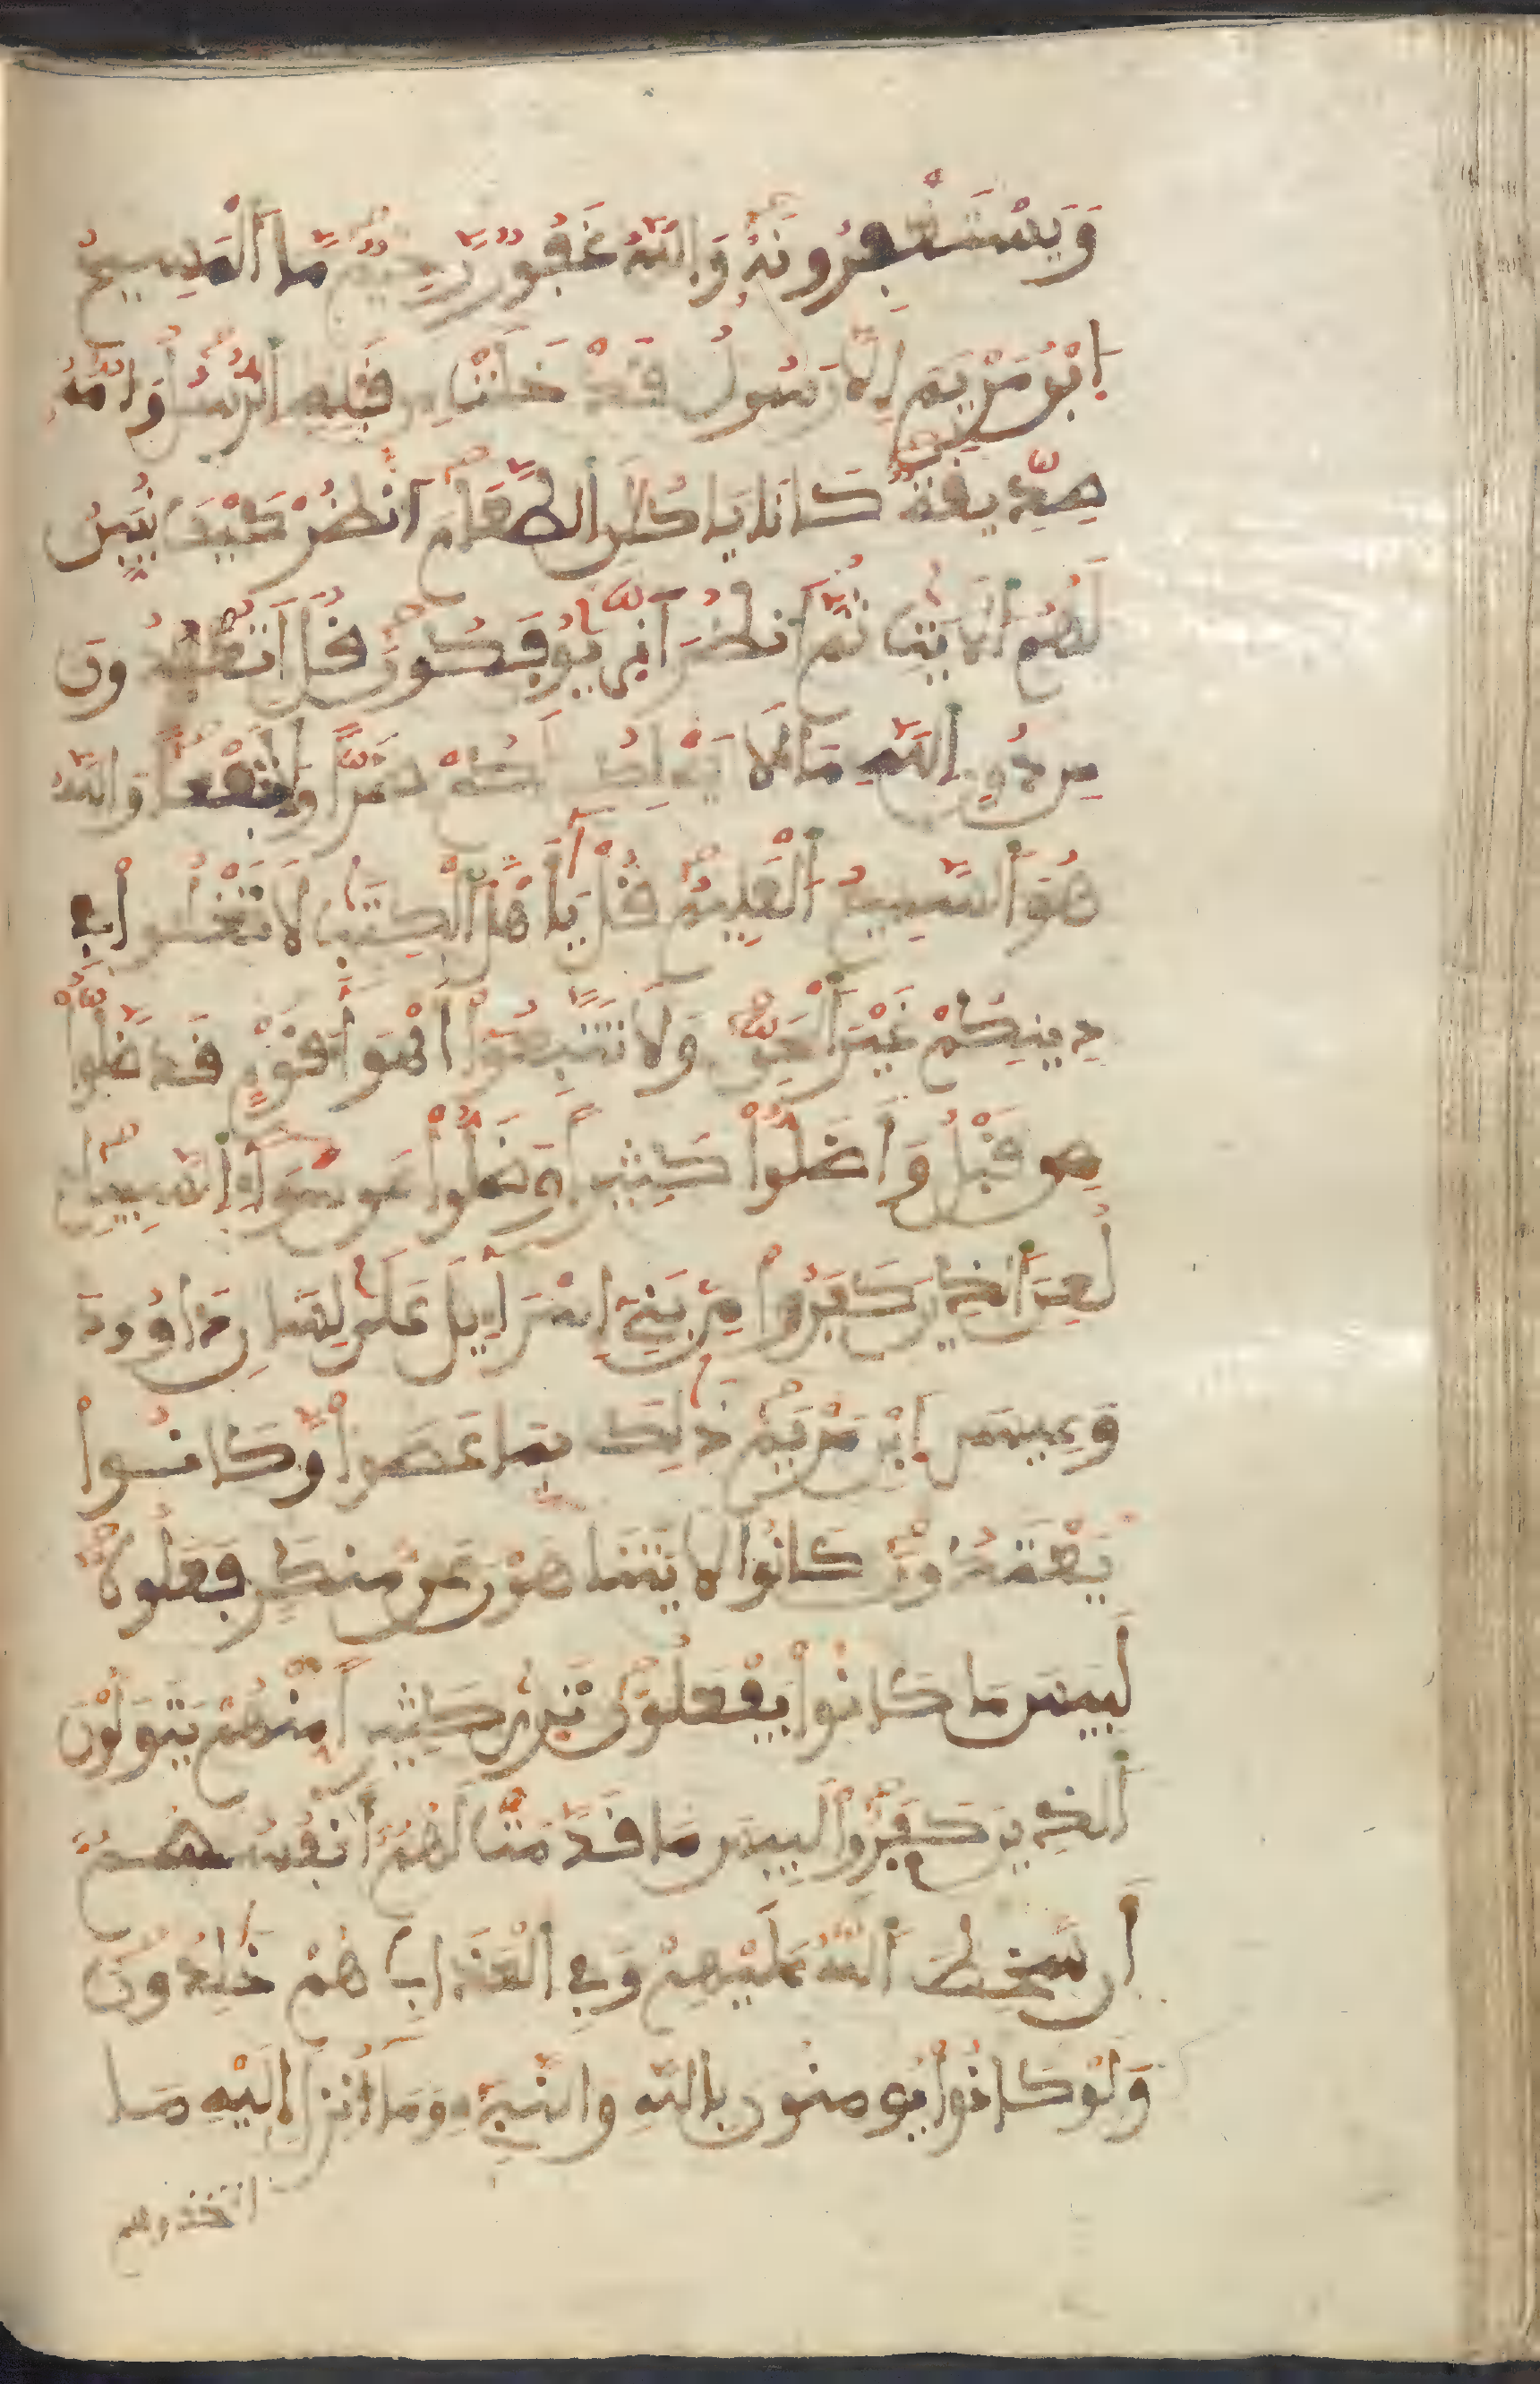 وَيَسْتَغْفِرُونَهُ وَاللَّهُ غَفُورٌ رَّحِيمٌ مَّا الْمَسِيحُ
ابْنُ مَرْيَمَ إِلَّا رَسُولٌ قَدْ خَلَتْ مِن قَبْلِهِ الرُّسُلُ وَأُمُّهُ
صِدِّيقَةٌ كَانَا يَاكُلَانِ الطَّعَامَ انظُرْ كَيْفَ نُبَيِّنُ
لَهُمُ الْآيَتِ ثُمَّ انظُرْ أَنَّى يُوفَكُونَ قُلْ أَتَعْبُدُونَ
مِن دُونِ اللَّهِ مَا لَا يَمْلِكُ لَكُمْ ضَرًّا وَلَا نَفْعًا وَاللَّهُ
هُوَ السَّمِيعُ الْعَلِيمُ قُلْ يَا أَهْلَ الْكِتَبِ لَا تَغْلُوا فِي
دِينِكُمْ غَيْرَ الْحَقِّ وَلَا تَتَّبِعُوا أَهْوَاءَ قَوْمٍ قَد ضَّلُّوا
مِن قَبْلُ وَأَضَلُّوا كَثِيرًا وَضَلُّوا عَن سَوَاءِ السَّبِيلِ
لُعِنَ الَّذِينَ كَفَرُوا مِن بَنِي إِسْرَائِيلَ عَلَى لِسَانِ دَاوُودَ
وَعِيسَى ابْنِ مَرْيَمَ ذَلِكَ بِمَا عَصَوا وَّكَانُوا
يَعْتَدُونَ كَانُوا لَا يَتَنَاهَوْنَ عَن مُّنكَرٍ فَعَلُوهُ
لَبِيسَ مَا كَانُوا يَفْعَلُونَ تَرَى كَثِيرًا مِّنْهُمْ يَتَوَلَّوْنَ
الَّذِينَ كَفَرُوا لَبِيسَ مَا قَدَّمَتْ لَهُمْ أَنفُسُهُمْ
أَن سَخِطَ اللَّهُ عَلَيْهِمْ وَفِي الْعَذَابِ هُمْ خَلِدُونَ
وَلَوْ كَانُوا يُومِنُونَ بِاللَّهِ وَالنَّبِيءِ وَمَا أُنزِلَ إِلَيْهِ مَا
اتخذوهم